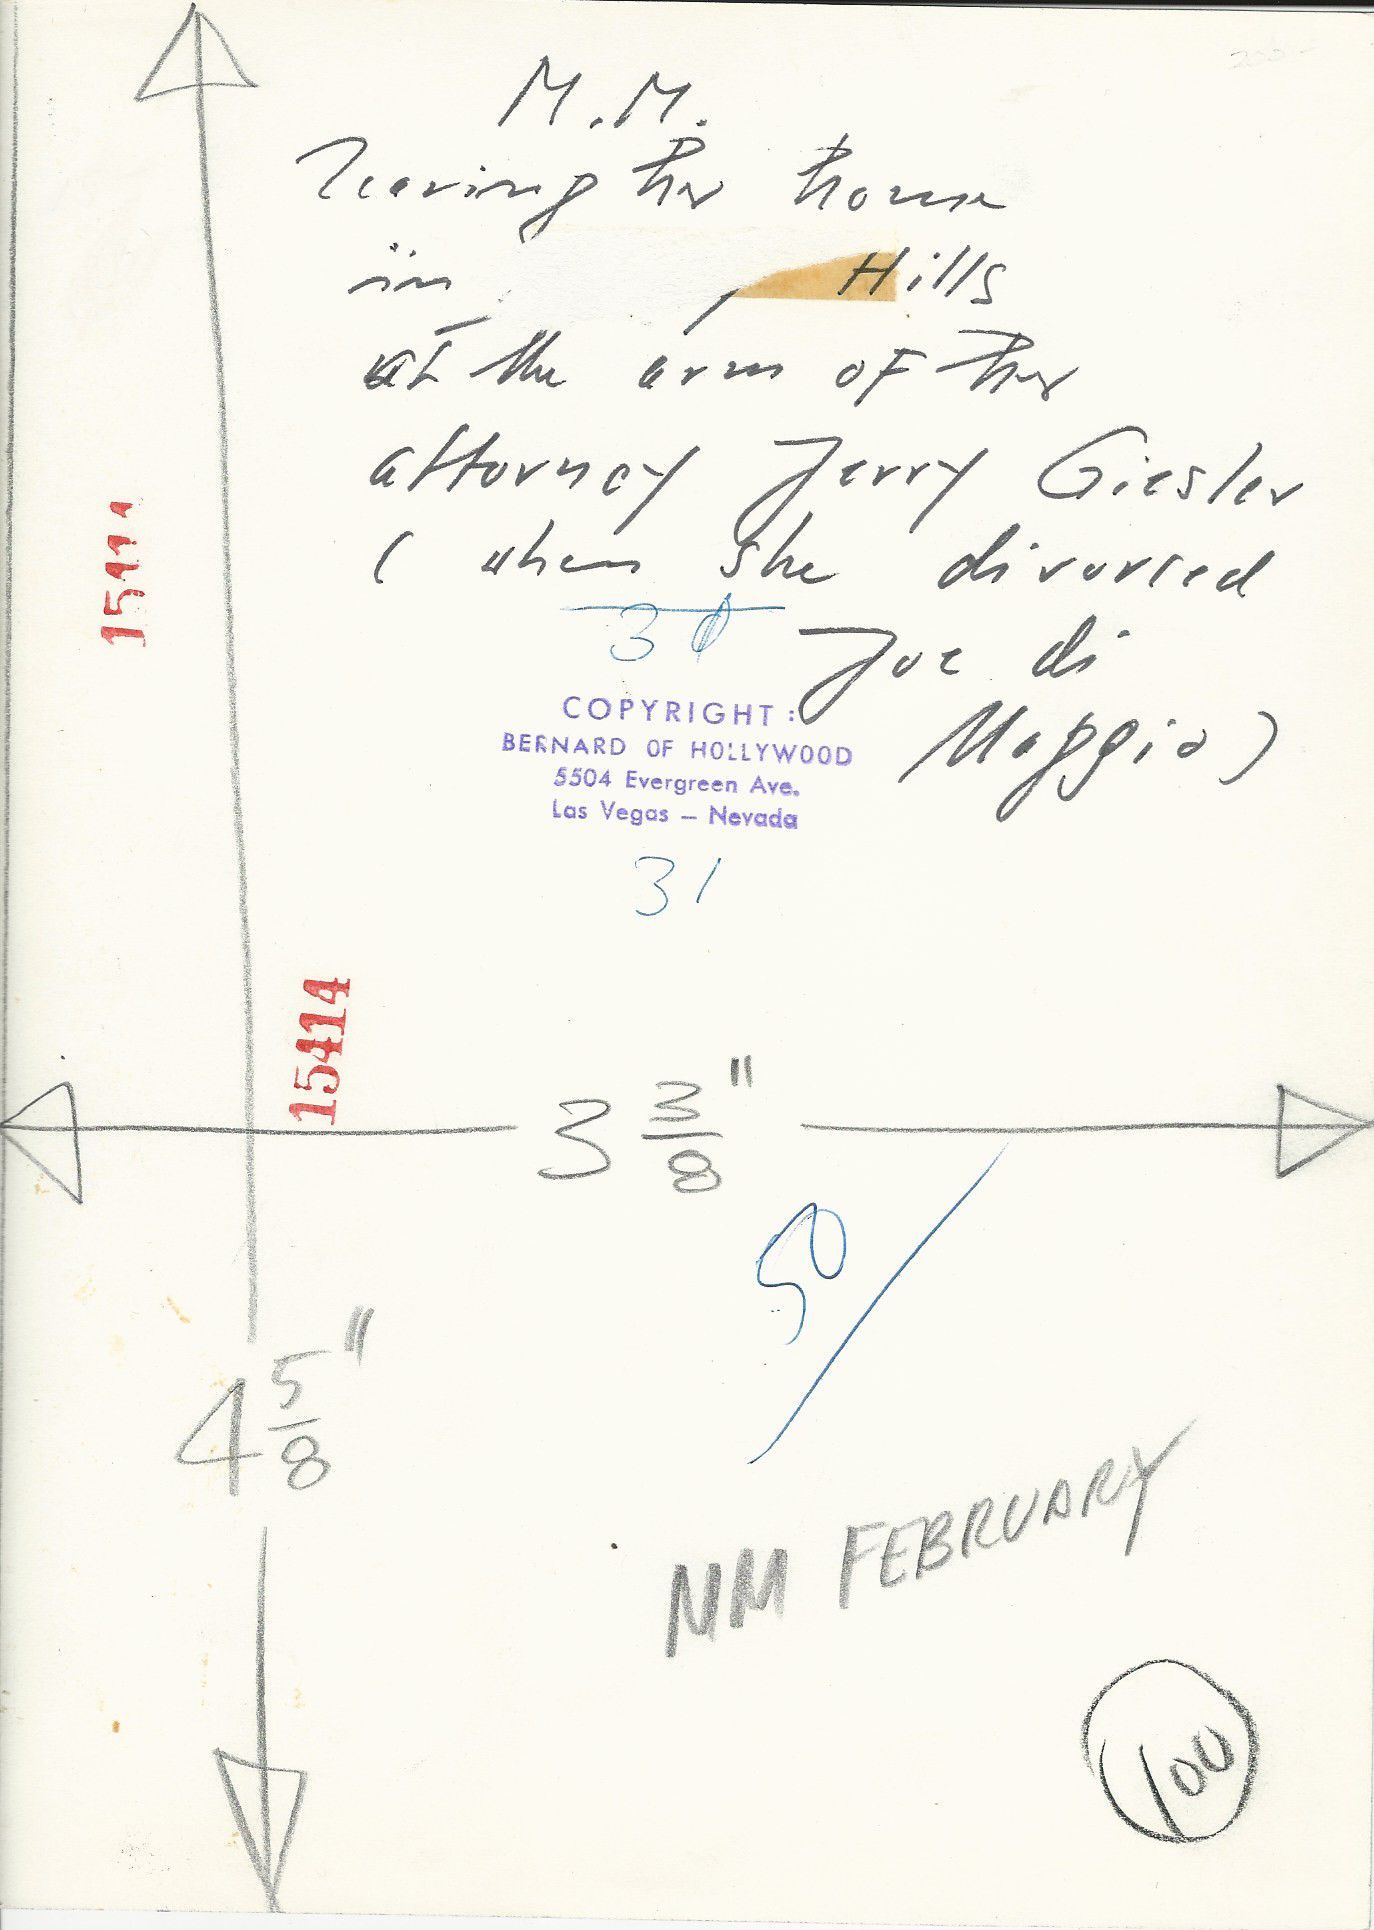 M.M.
leaving her house
in Hills
at the arm of her
attorney Jerry Giesler
( when she divorced
Joe di
Maggio )
COPYRIGHT :
BERNARD OF HOLLYWOOD
5504 Evergreen Ave.
Las Vegas – Nevada
31
15414
3 3/8"
50
4 5/8"
NM FEBRUARY
100